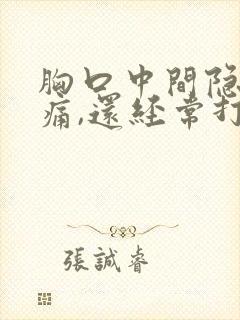 胸口中間隐
痛,還经常打
張誠睿